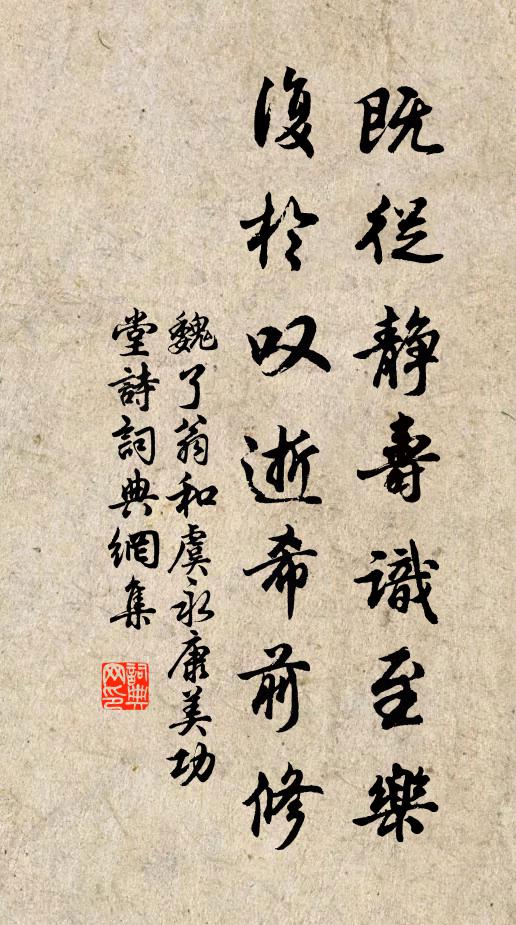 既從静壽識至樂
復於叹逝希前修
魏了翁和虞永康美功
堂詩詞典網集
詞典网印